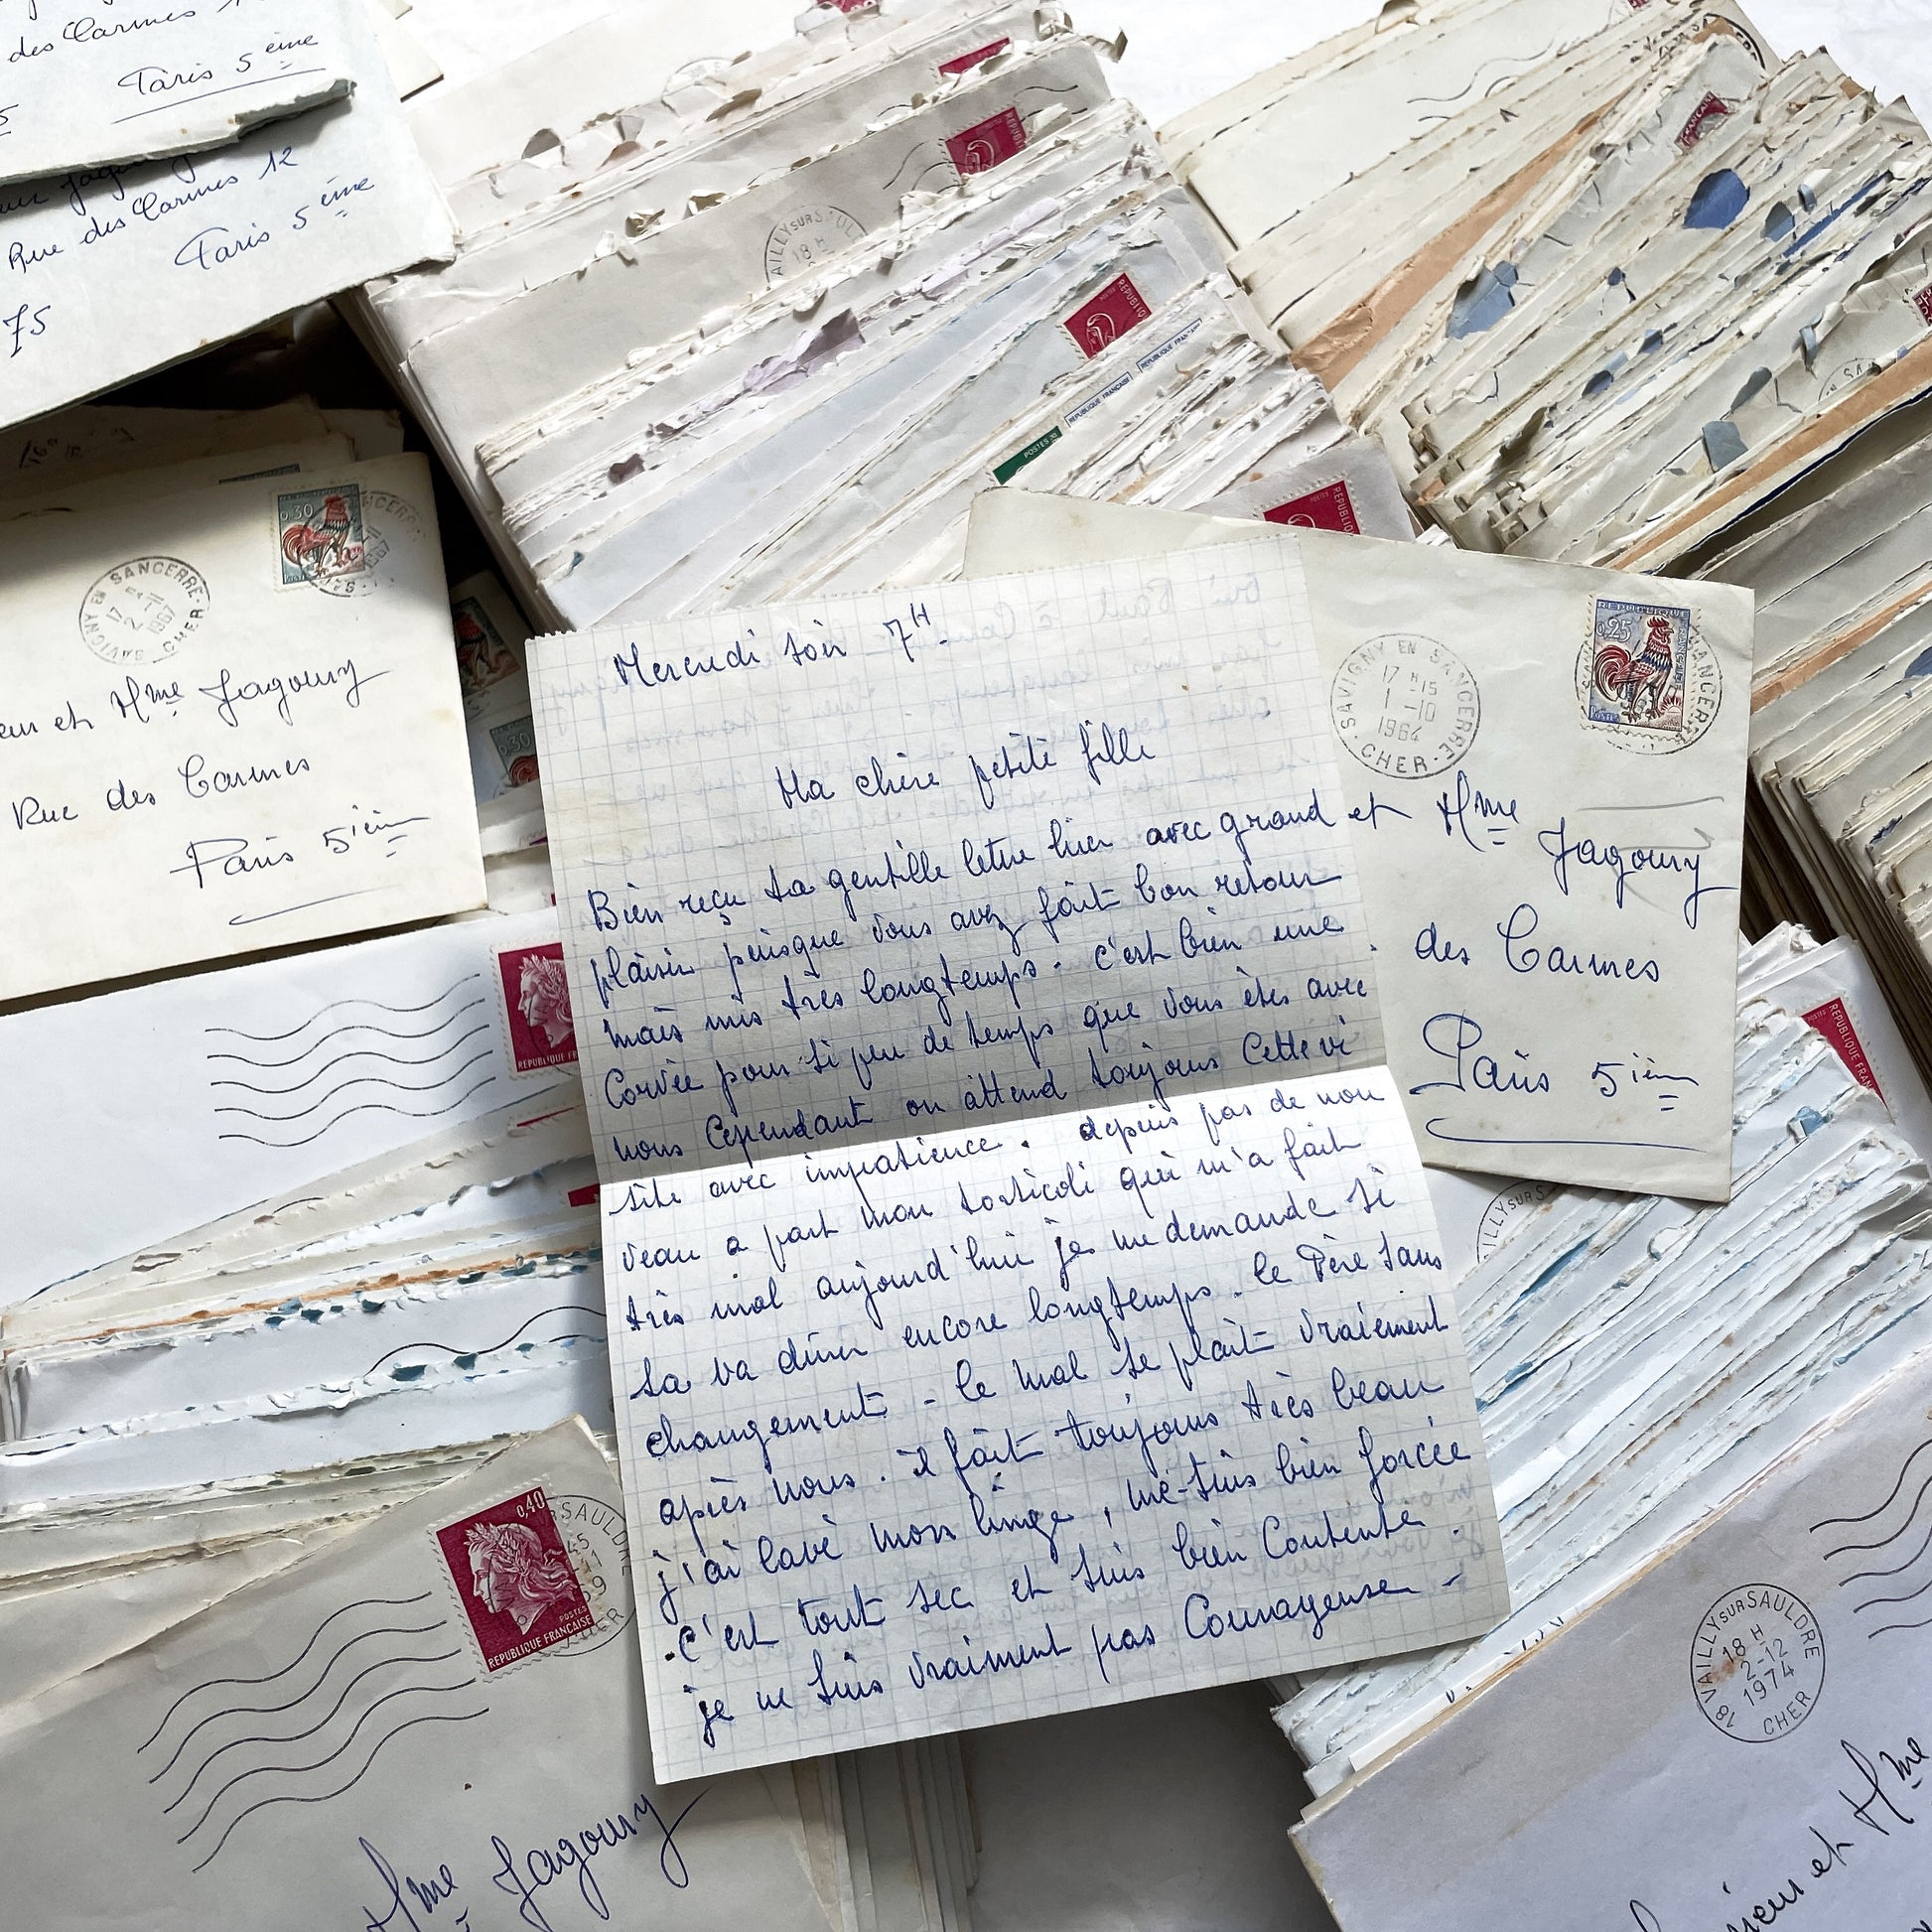 des Carmes 12
Paris 5 ème
Rue des Carmes 12
Paris 5 ème
75
RÉPUBLIQUE
POSTES
REPUBLIQUE FRANÇAISE
0,30
SAVIGNY EN SANCERRE
17 H
2-11
1967
CHER
et Mme Jagoury
Rue des Carmes
Paris 5ième
Mercredi soir 7H.
Ma chère petite fille
Bien reçu ta gentille lettre hier avec grand
plaisir puisque vous avez fait bon retour
mais mis très longtemps. c'est bien une
Corvée pour si peu de temps que vous êtes avec
nous Cependant on attend toujours Cette vi
site avec impatience. depuis pas de nou
veau a part mon torticoli qui m'a fait
très mal aujourd'hui je me demande si
sa va durer encore longtemps. le Père sans
changement - le mal se plait vraiement
après nous. il fait toujours très beau
j'ai lavé mon linge, me suis bien forcée
c'est tout sec et suis bien Contente.
je ne suis vraiment pas Courageuse -
SAVIGNY EN SANCERRE
17 H 15
1-10
1964
CHER
REPUBLIQUE
0,25
POSTES
et Mme Jagoury
des Carmes
Paris 5ième
0,40
POSTES
REPUBLIQUE FRANÇAISE
Mme Jagoury
18 VAILLY SUR SAULDRE
18 H
2-12
1974
CHER
et Mme